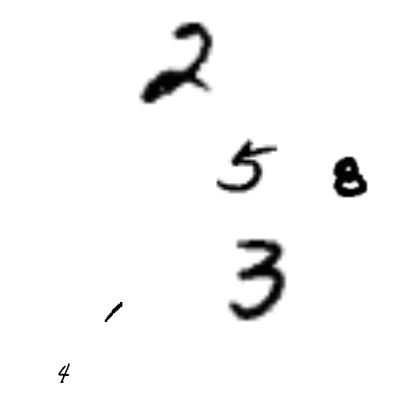 2
5 8
3
1
4